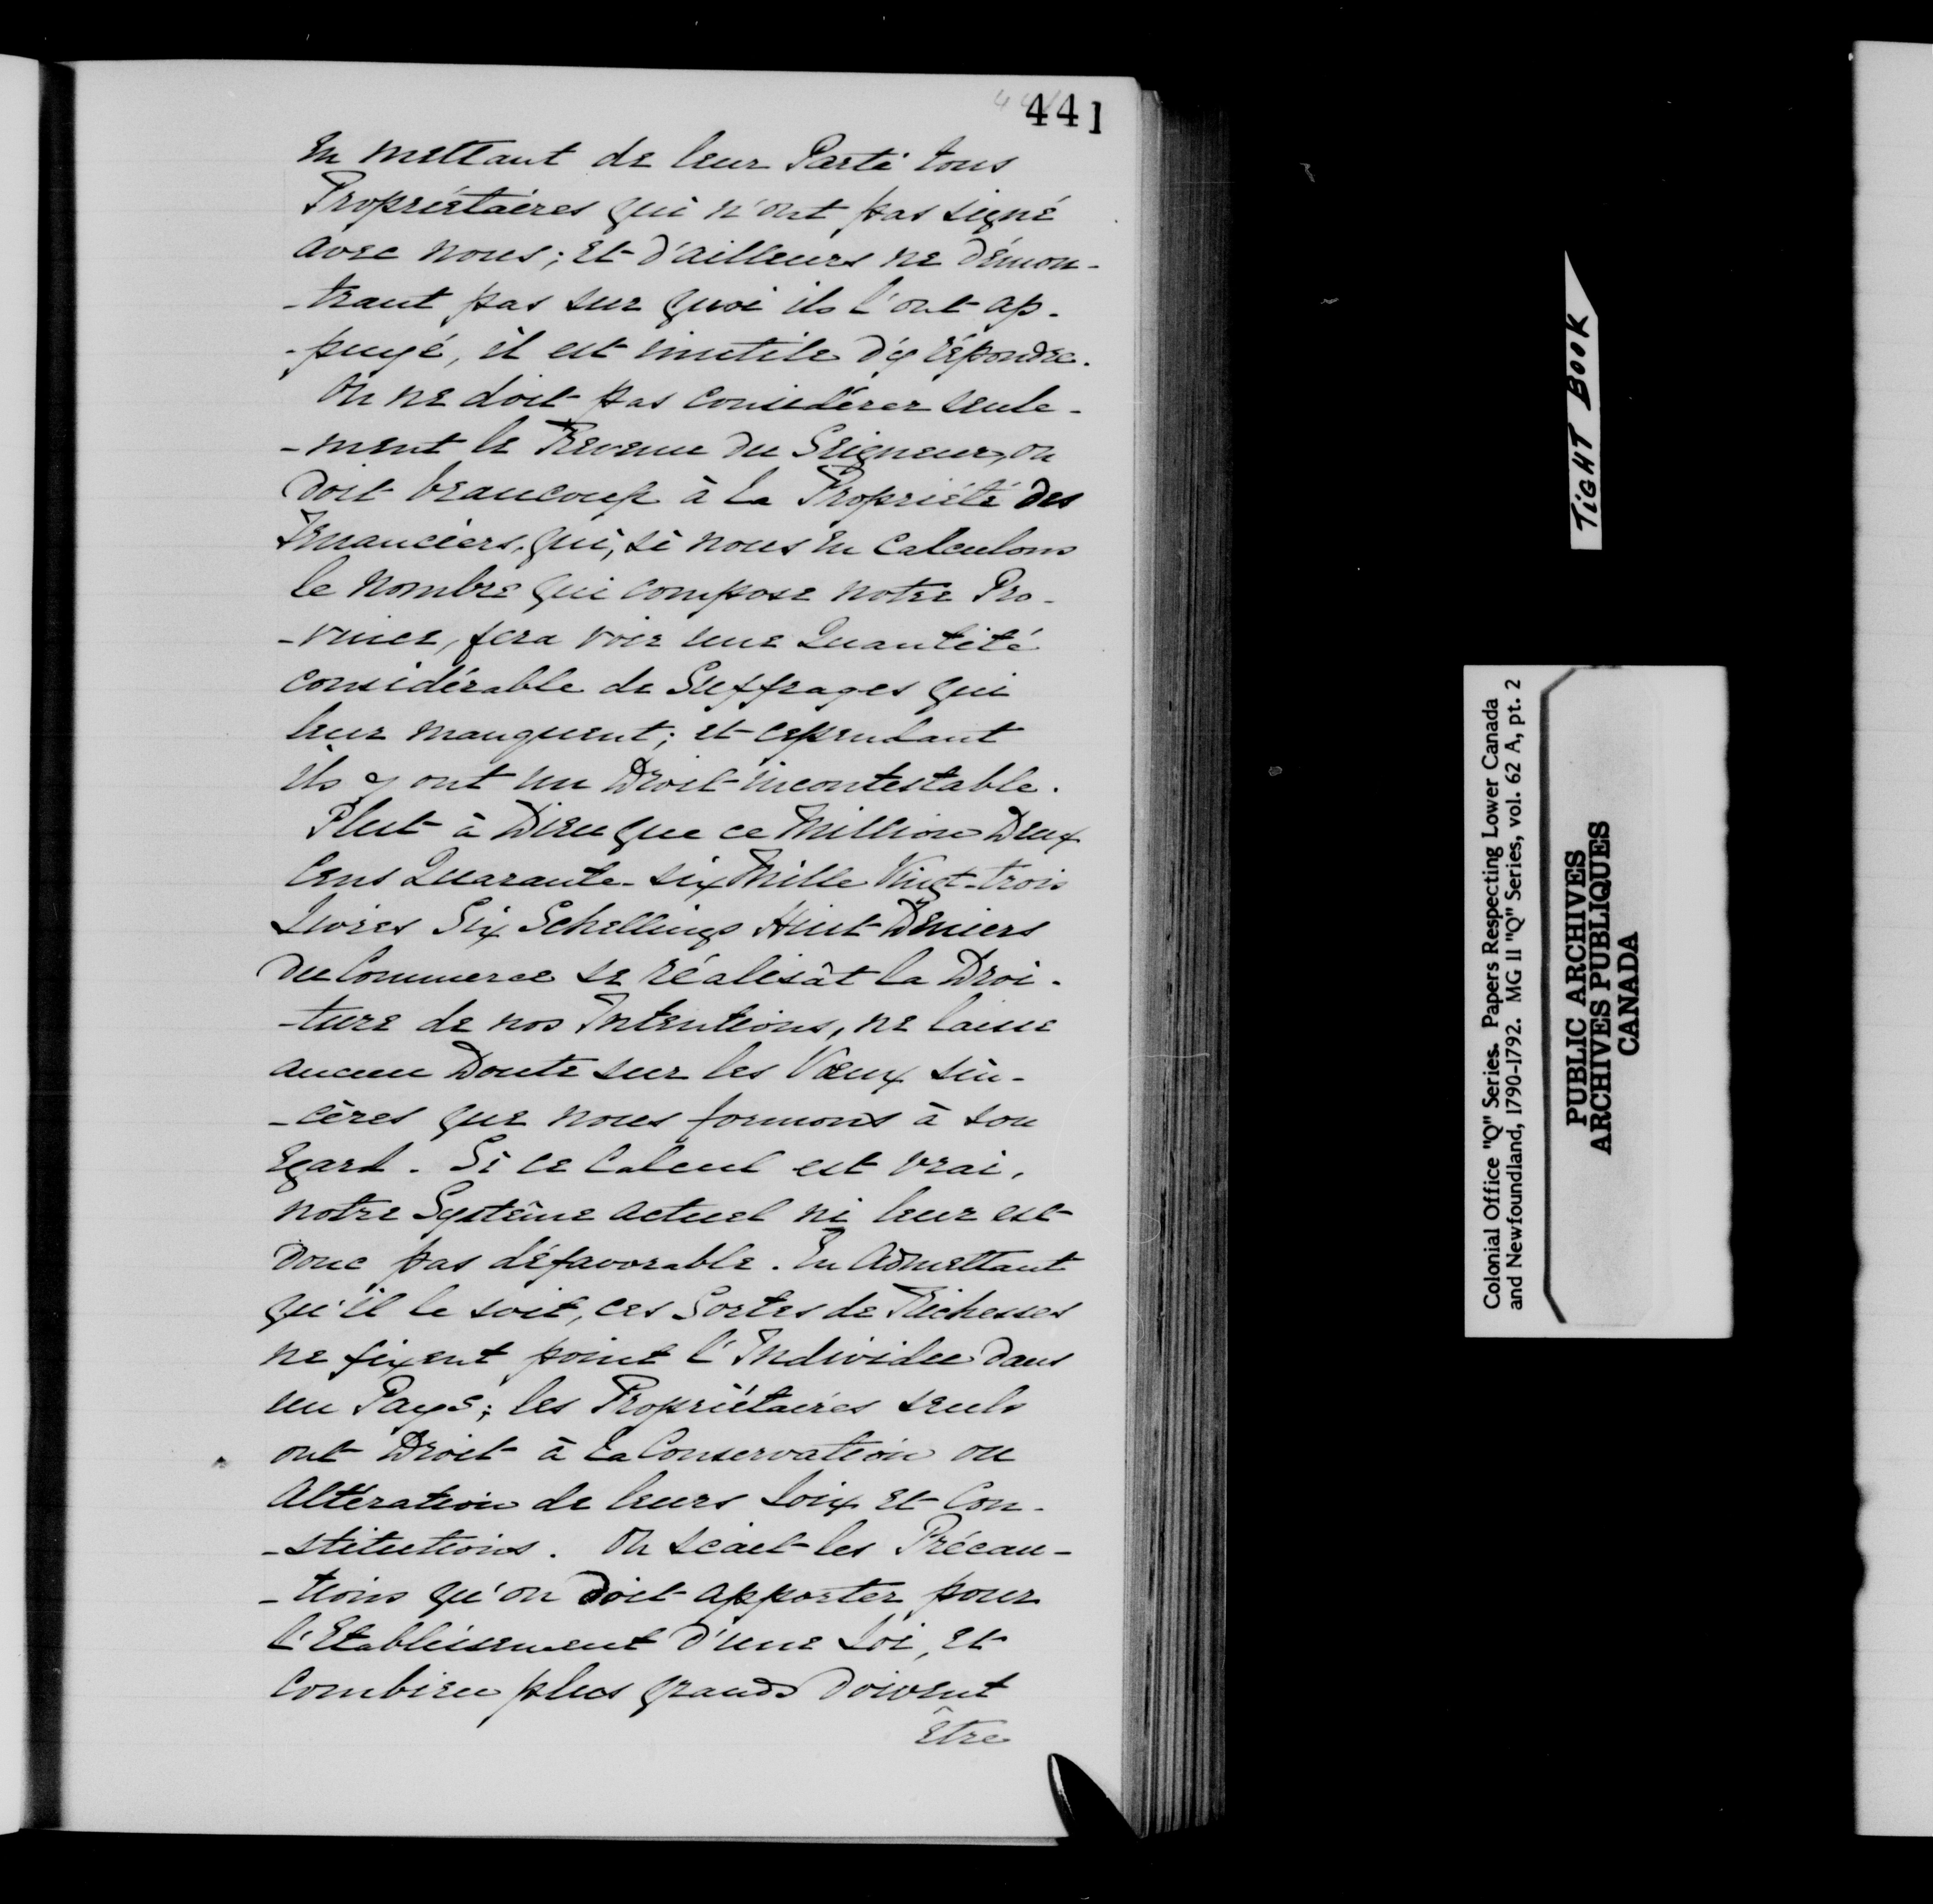 441
En mettant de leur Parti tous
Propriétaires qui n'ont pas signé
avec nous; et d'ailleurs ne démon-
-trant pas sur quoi ils l'ont ap-
-puyé, il est inutile d'y répondre.
On ne doit pas considérer seule-
-ment le Revenu du Seigneur, on
doit beaucoup à la Propriété des
Tenanciers, qui, si nous en calculons
le nombre qui compose notre Pro-
-vince, fera voir une Quantité
considérable de Suffrages qui
leur manquent; et cependant
ils y ont un Droit incontestable.
Plut à Dieu que ce Million Deux
Cens Quarante-six Mille Vingt-trois
Livres Six Schellings Huit Deniers
du Commerce se réalisât la Droi-
-ture de nos Intentions, ne laisse
aucun Doute sur les Vœux sin-
-cères que nous formons à son
Egard. Si ce Calcul est vrai,
notre Systême actuel ni leur est
donc pas défavorable. En admettant
qu'il le soit, ces Sortes de Richesses
ne fixent point l'Individu dans
un Pays; les Propriétaires seuls
ont Droit à la Conservation ou
Altération de leurs Loix et Con-
-stitutions. On sçait les Précau-
-tions qu'on doit apporter pour
l'Etablissement d'une Loi, et
combien plus grands doivent
être
TIGHT BOOK
Colonial Office "Q" Series. Papers Respecting Lower Canada
and Newfoundland, 1790-1792. MG 11 "Q" Series, vol. 62 A, pt. 2
PUBLIC ARCHIVES
ARCHIVES PUBLIQUES
CANADA